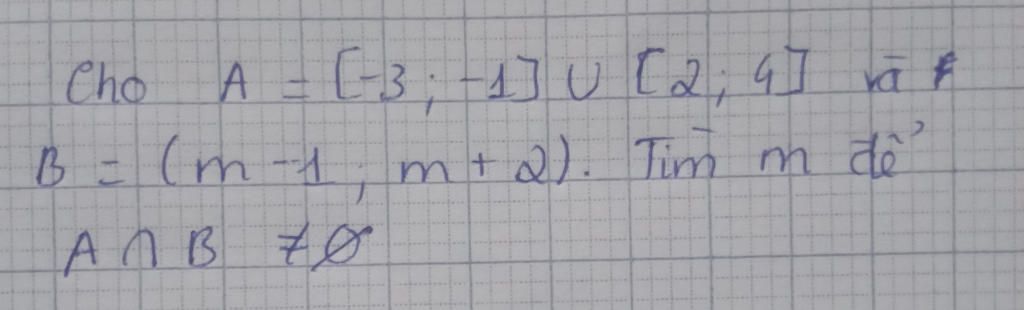 Cho A = [-3; -1] ∪ [2; 4] và
B = (m -1; m + 2). Tìm m để
A ∩ B ≠ ∅